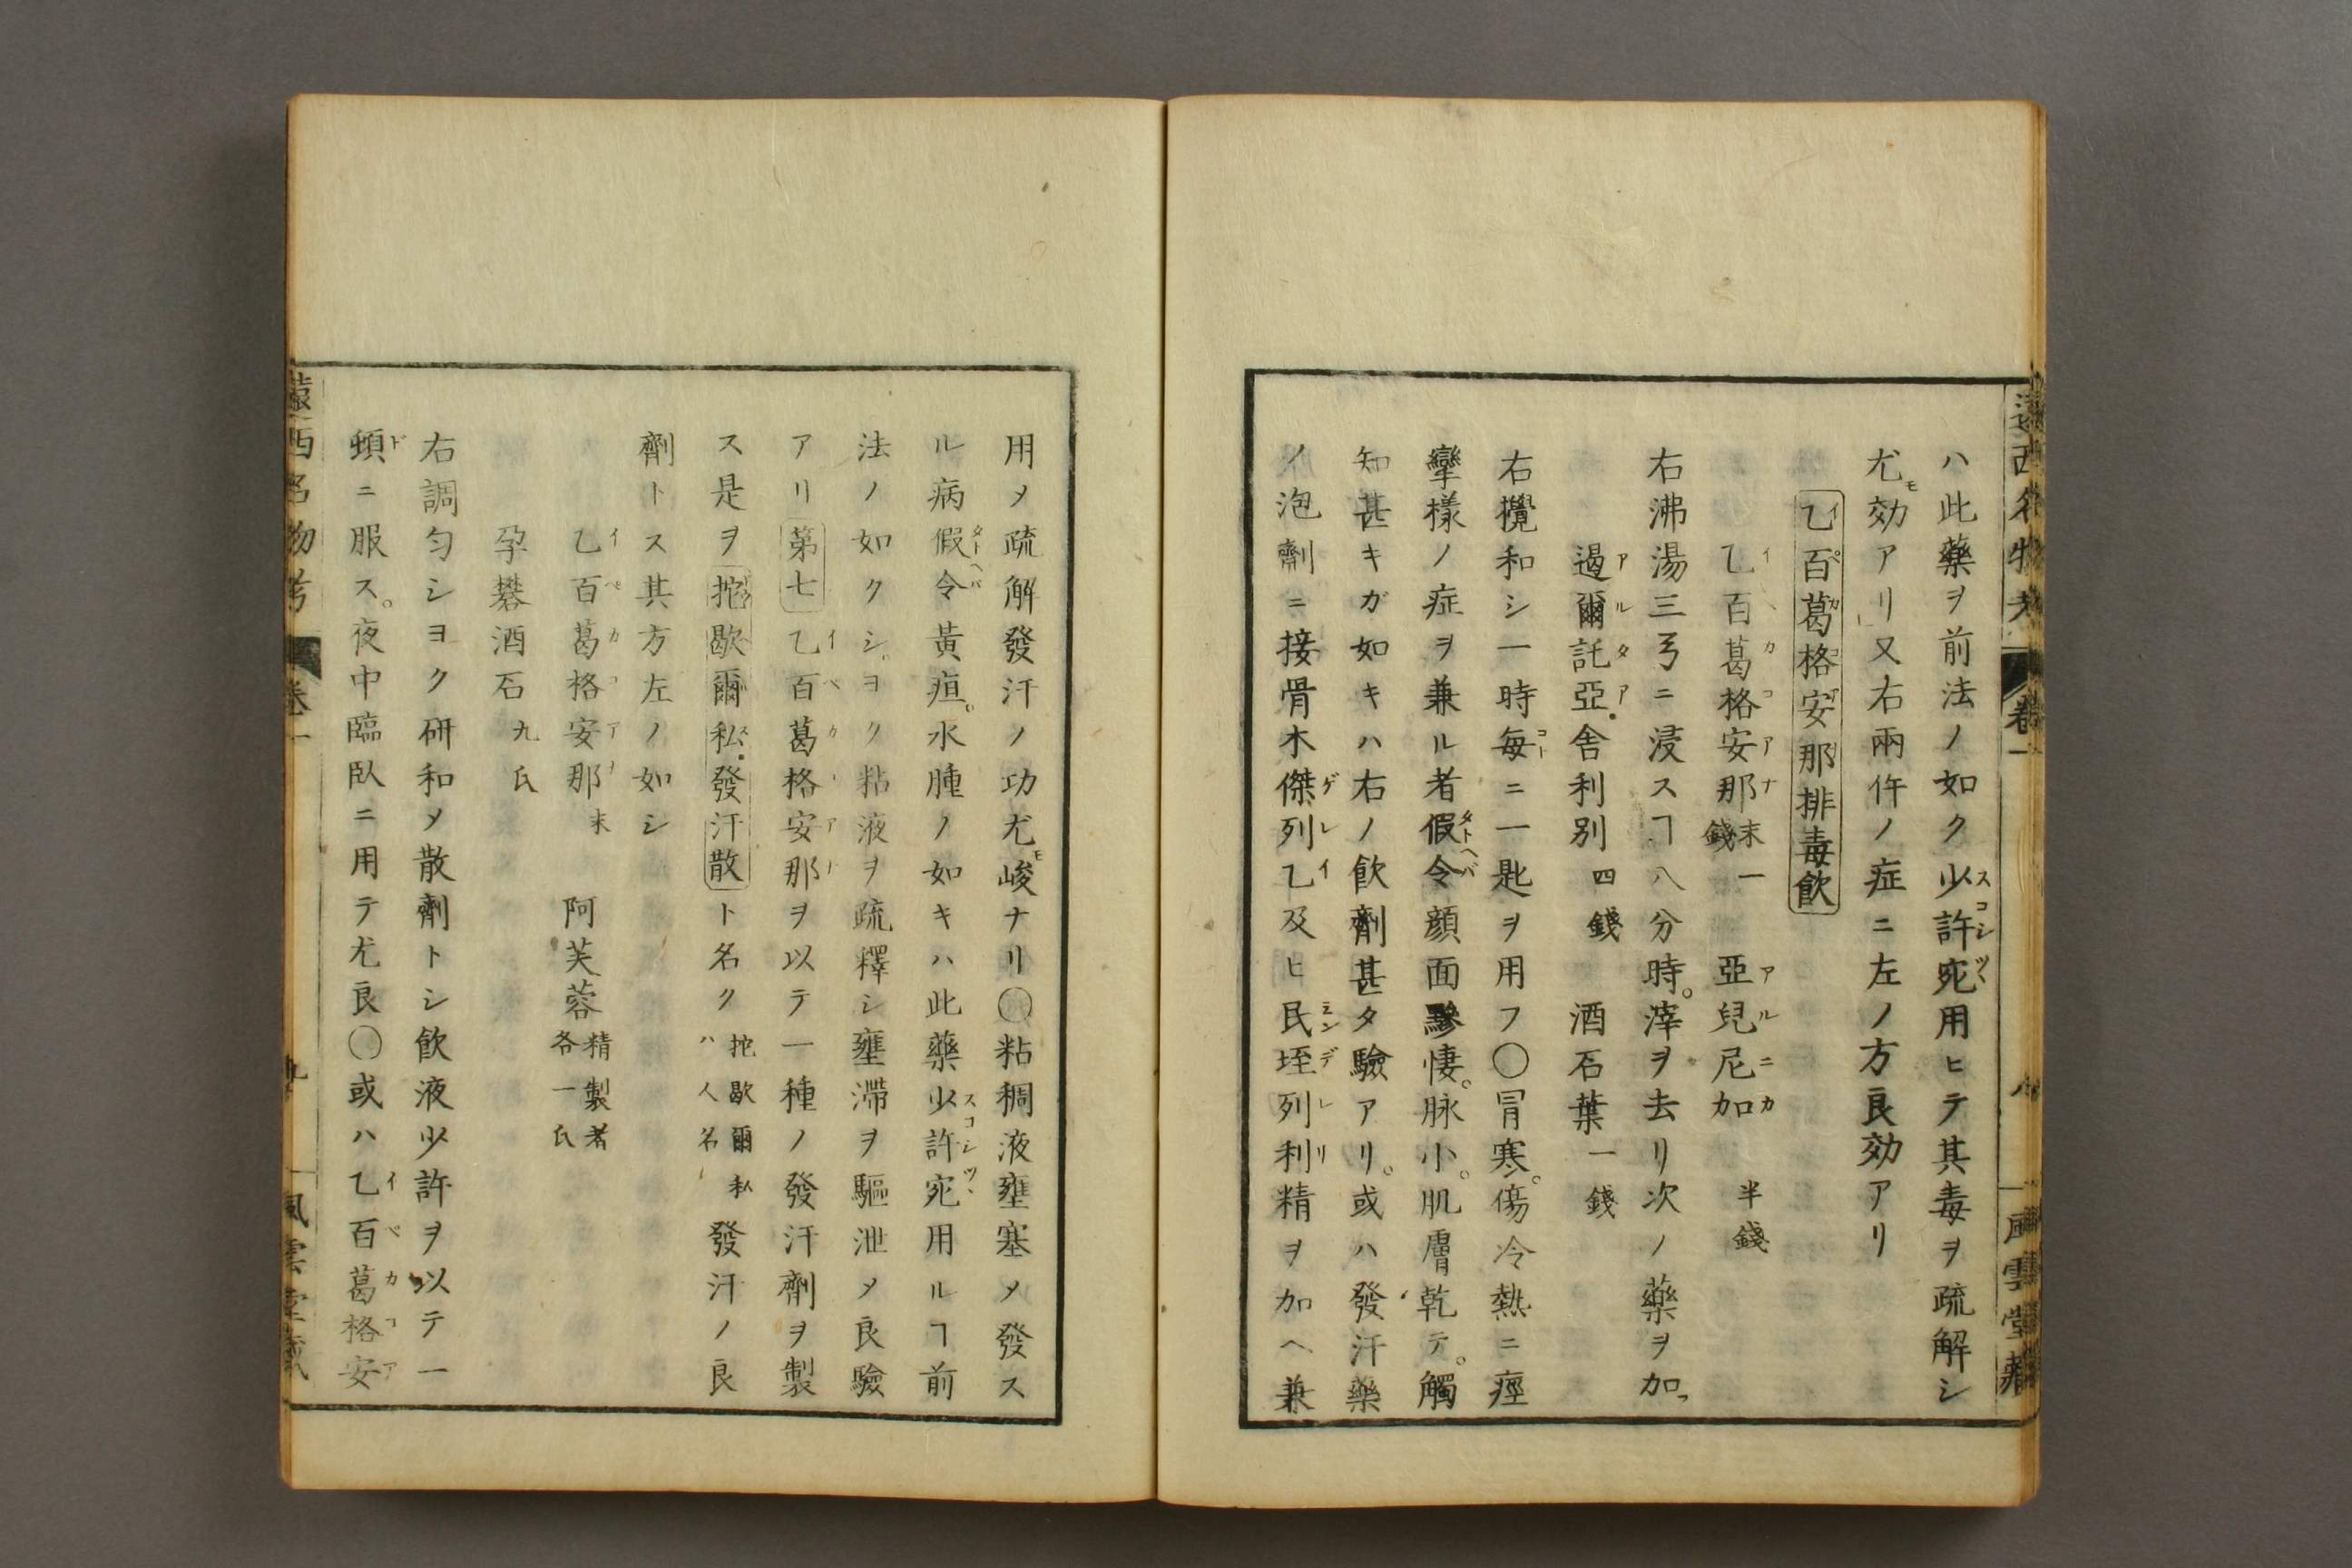 遠西名物考 卷一 八 風雲堂藏
ハ此藥ヲ前法ノ如ク少許宛用ヒテ其毒ヲ疏解シ
尤効アリ又右兩件ノ症ニ左ノ方良効アリ
乙百葛格安那排毒飲
乙百葛格安那末一錢 亞兒尼加 半錢
右沸湯三弓ニ浸スヿ八分時。滓ヲ去リ次ノ藥ヲ加フ
遏爾託亞舍利別 四錢 酒石葉 一錢
右攪和シ一時每ニ一匙ヲ用フ〇冒寒。傷冷熱ニ痙
攣樣ノ症ヲ兼ル者假令顏面黲悽。脉小。肌膚乾テ。觸
知甚キガ如キハ右ノ飮劑甚タ驗アリ。或ハ發汗藥
ノ泡劑ニ接骨木傑列乙及ヒ民垤列利精ヲ加ヘ兼
用メ疏解發汗ノ功尤峻ナリ〇粘稠液壅塞メ發ス
ル病假令黃疸。水腫ノ如キハ此藥少許宛用ルヿ前
法ノ如クシ。ヨク粘液ヲ疏釋シ壅滯ヲ驅泄メ良驗
アリ第七乙百葛格安那ヲ以テ一種ノ發汗劑ヲ製
ス是ヲ拕歇爾私發汗散ト名ク拕歇爾私ハ人名發汗ノ良
劑トス其方左ノ如シ
乙百葛格安那末 阿芙蓉精製者各一氏
孕礬酒石九氏
右調勻シヨク研和メ散劑トシ飮液少許ヲ以テ一
頓ニ服ス。夜中臨臥ニ用テ尤良〇或ハ乙百葛格安
遠西名物考 卷一 九 風雲堂藏